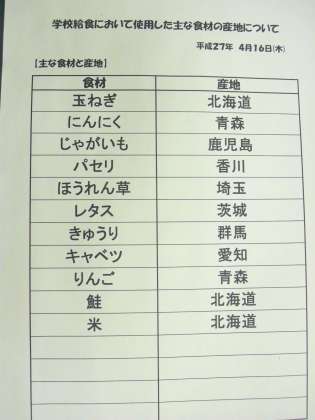 学校給食において使用した主な食材の産地について
平成27年 4月16日(木)
【主な食材と産地】
食材 産地
玉ねぎ 北海道
にんにく 青森
じゃがいも 鹿児島
パセリ 香川
ほうれん草 埼玉
レタス 茨城
きゅうり 群馬
キャベツ 愛知
りんご 青森
鮭 北海道
米 北海道